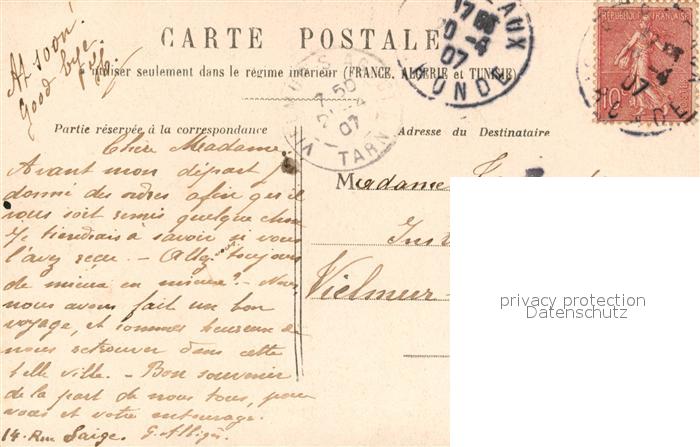 At soon!
Good bye
CARTE POSTALE
à utiliser seulement dans le régime intérieur (FRANCE, ALGÉRIE et TUNISIE)
RÉPUBLIQUE FRANÇAISE
10
07
GIRONDE
TARN
07
Partie réservée à la correspondance
Adresse du Destinataire
Chère Madame.
Avant mon départ j'
donné des ordres afin qu'il
vous soit remis quelque chose
Je tiendrais à savoir si vous
l'avez reçu. – Allez vous toujours
de mieux en mieux? – Nous,
nous avons fait un bon
voyage, et sommes heureux de
nous retrouver dans cette
belle ville. – Bon souvenir
de la part de nous tous, pour
vous et votre entourage.
14. Rue Saige.
Madame
Vielmur-
privacy protection
Datenschutz